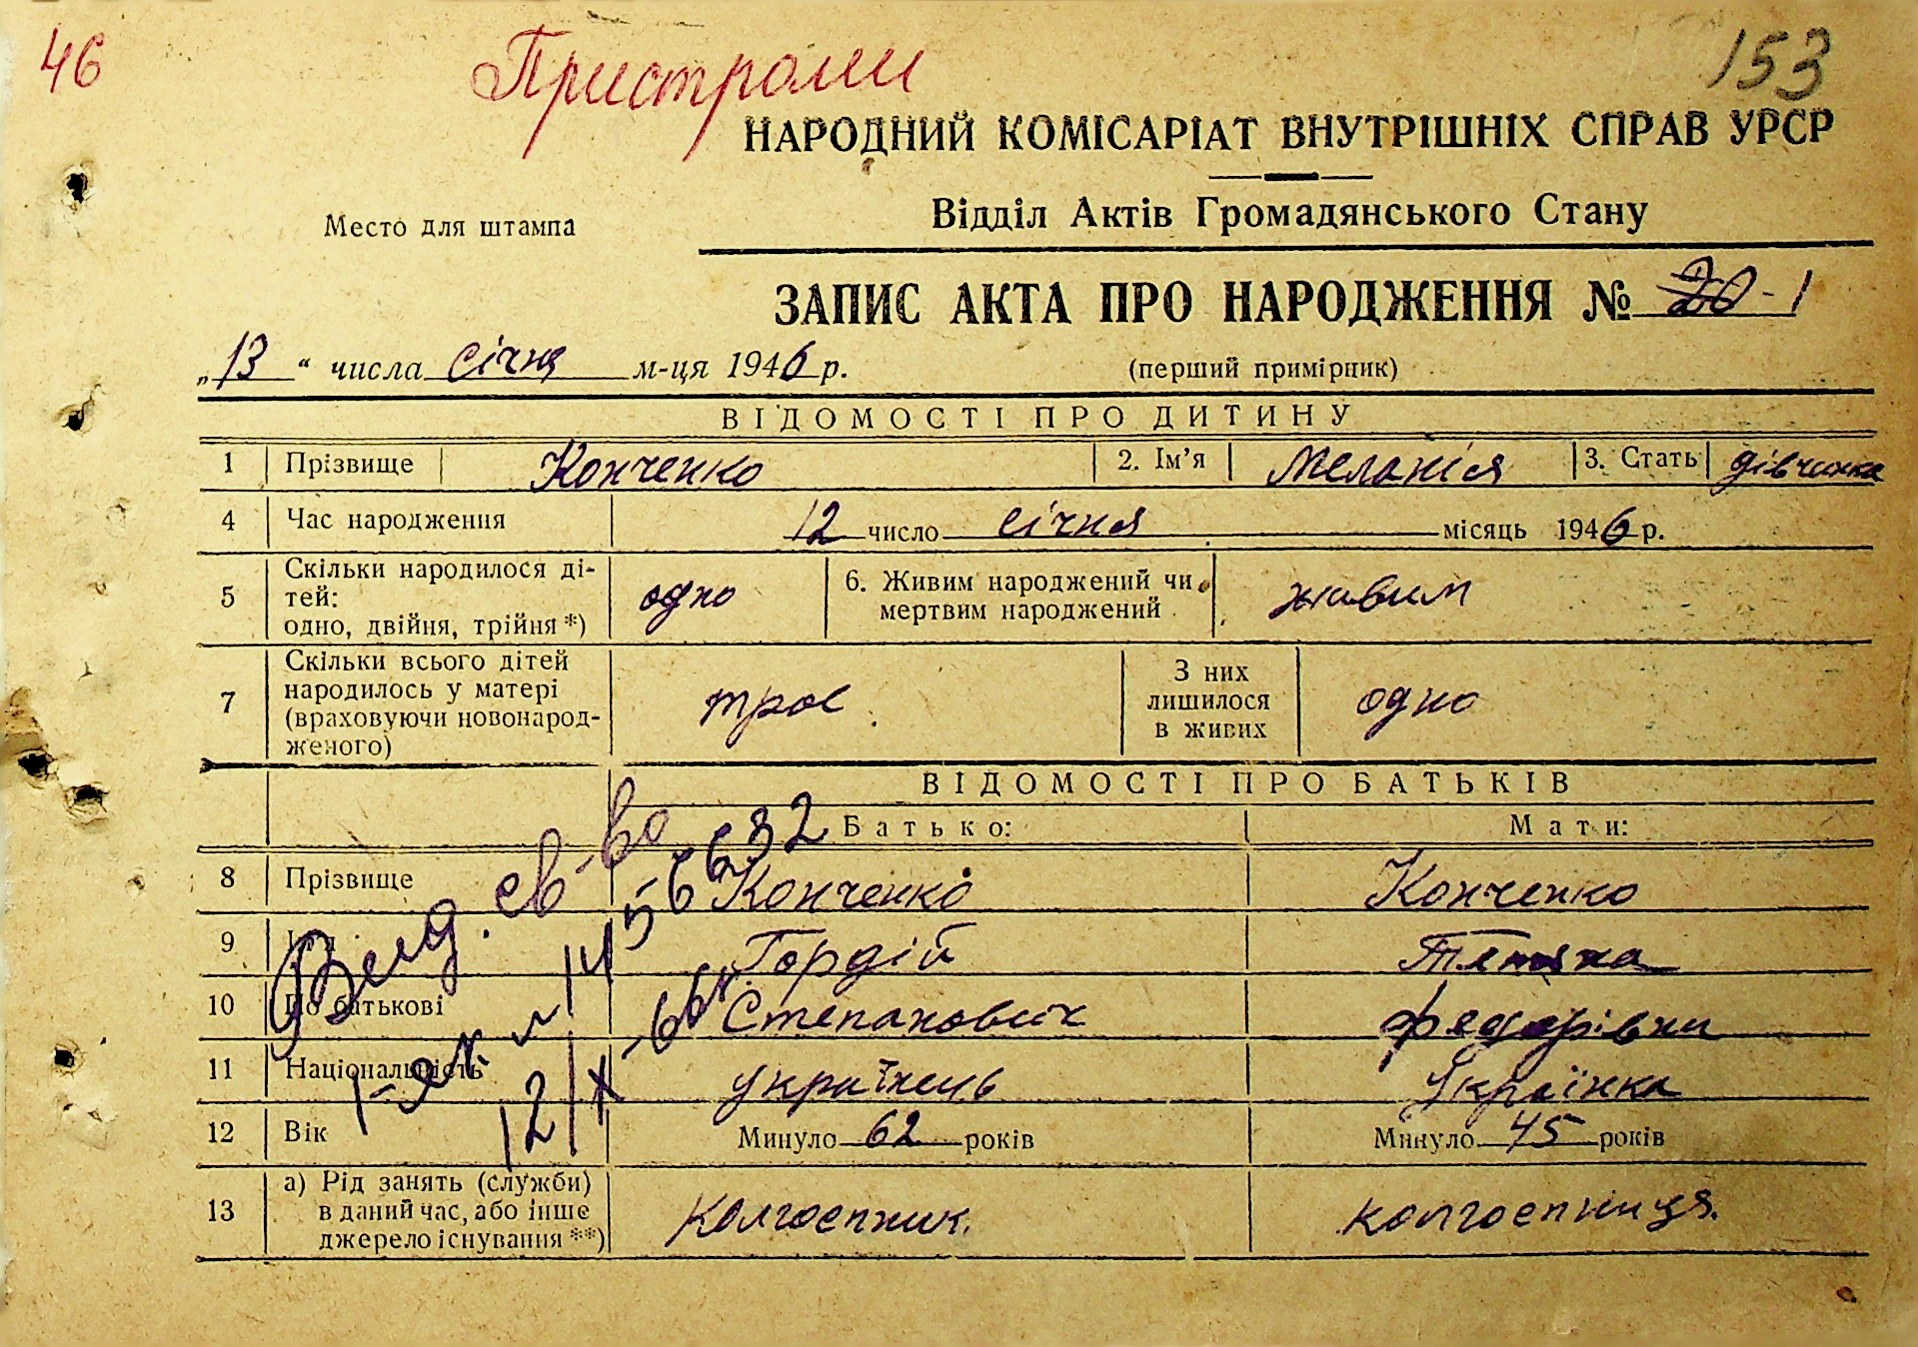 46
Пристроми
153
НАРОДНИЙ КОМІСАРІАТ ВНУТРІШНІХ СПРАВ УРСР
Место для штампа
Відділ Актів Громадянського Стану
ЗАПИС АКТА ПРО НАРОДЖЕННЯ № 20 - 1
„13“ числа січня м-ця 1946 р. (перший примірник)
ВІДОМОСТІ ПРО ДИТИНУ
1 Прізвище Конченко 2. Ім’я Меланія 3. Стать дівчинка
4 Час народження 12 число січня місяць 1946 р.
5 Скільки народилося ді-
тей:
одно, двійня, трійня *) одно 6. Живим народжений чи
мертвим народжений живим
7 Скільки всього дітей
народилось у матері
(враховуючи новонарод-
женого) троє З них
лишилося
в живих одно
ВІДОМОСТІ ПРО БАТЬКІВ
Батько: Мати:
8 Прізвище Конченко Конченко
9 Ім’я Гордій
10 По батькові Степанович Федорівни
11 Національність українець Українка
12 Вік Минуло 62 років Минуло 45 років
13 а) Рід занять (служби)
в даний час, або інше
джерело існування **) колгоспник. колгоспниця.
Выд. св-во
12/X-66г.